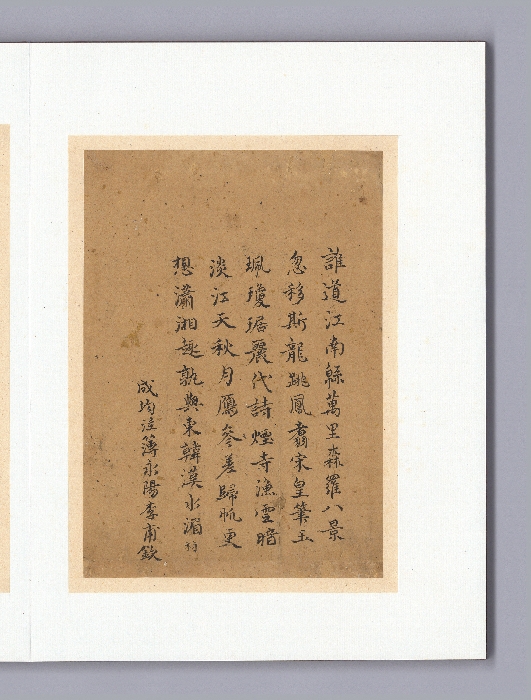 誰道江南緜萬里森羅八景
忽移斯龍跳鳳翥宋皇筆玉
珮瓊琚麗代詩煙寺漁雪暗
淡江天秋月鴈參差歸帆更
想瀟湘趣孰與東韓漢水湄
成均注簿永陽李甫欽